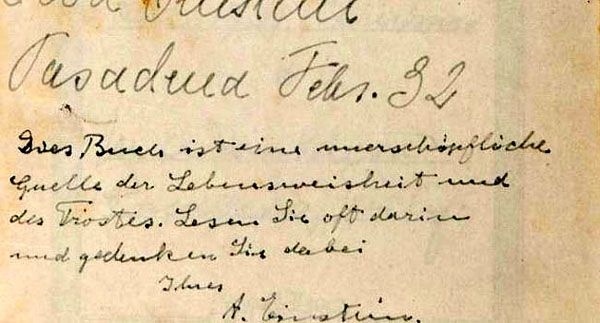 Einstein
Pasadena Febr. 32
Dies Buch ist eine unerschöpfliche
Quelle der Lebensweisheit und
des Trostes. Lesen Sie oft darin
und gedenken Sie dabei
Ihres
A. Einstein.